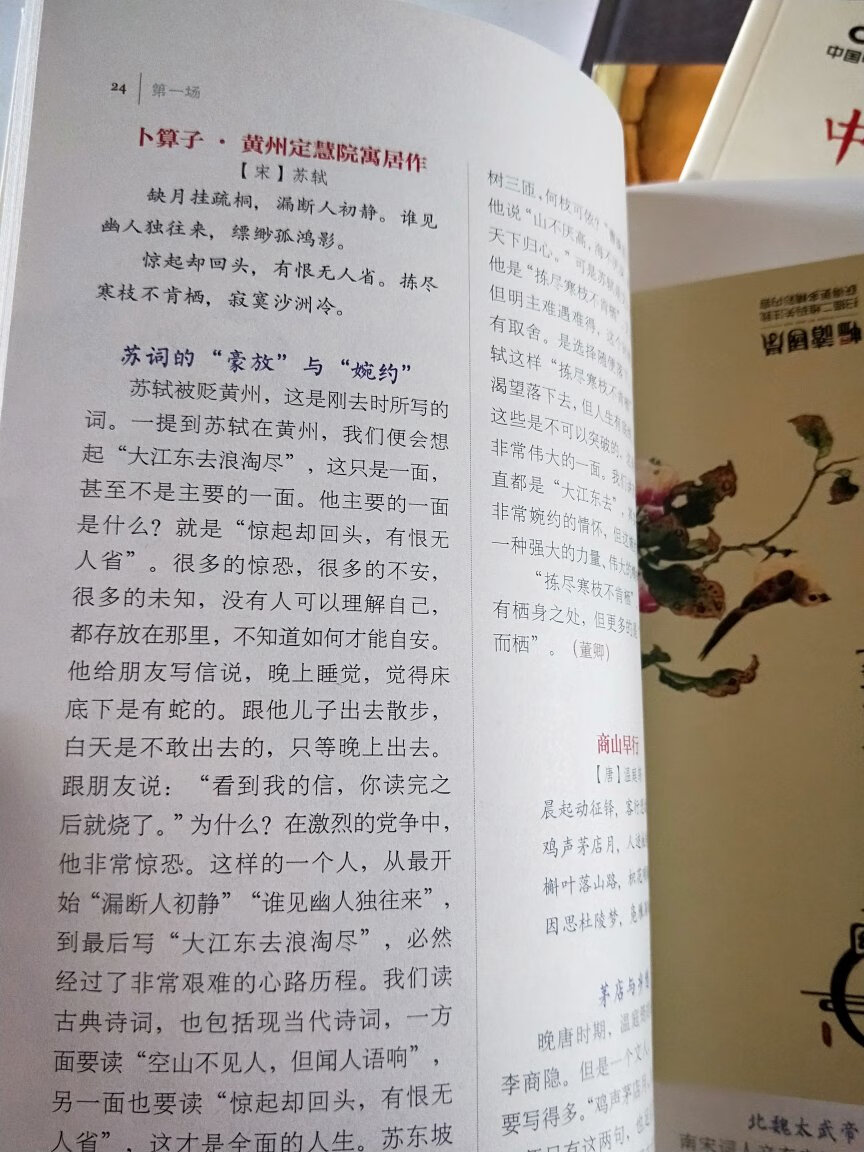 24 第一场
卜算子·黄州定慧院寓居作
【宋】苏轼
缺月挂疏桐，漏断人初静。谁见
幽人独往来，缥缈孤鸿影。
惊起却回头，有恨无人省。拣尽
寒枝不肯栖，寂寞沙洲冷。
苏词的“豪放”与“婉约”
苏轼被贬黄州，这是刚去时所写的
词。一提到苏轼在黄州，我们便会想
起“大江东去浪淘尽”，这只是一面，
甚至不是主要的一面。他主要的一面
是什么？就是“惊起却回头，有恨无
人省”。很多的惊恐，很多的不安，
很多的未知，没有人可以理解自己，
都存放在那里，不知道如何才能自安。
他给朋友写信说，晚上睡觉，觉得床
底下是有蛇的。跟他儿子出去散步，
白天是不敢出去的，只等晚上出去。
跟朋友说：“看到我的信，你读完之
后就烧了。”为什么？在激烈的党争中，
他非常惊恐。这样的一个人，从最开
始“漏断人初静”“谁见幽人独往来”，
到最后写“大江东去浪淘尽”，必然
经过了非常艰难的心路历程。我们读
古典诗词，也包括现当代诗词，一方
面要读“空山不见人，但闻人语响”，
另一面也要读“惊起却回头，有恨无
人省”，这才是全面的人生。苏东坡
树三匝，何枝可依？”
他说“山不厌高，海不
天下归心。”可是苏轼
他是“拣尽寒枝不肯栖”
但明主难遇难得，这个
有取舍。是选择随便落
轼这样“拣尽寒枝不肯栖”
渴望落下去，但人生有
这些是不可以突破的。
非常伟大的一面。我们
直都是“大江东去”，
非常婉约的情怀，但这
一种强大的力量、伟大的
“拣尽寒枝不肯栖”
有栖身之处，但更多的是
而栖”。（董卿）
商山早行
【唐】温庭
晨起动征铎，客行悲
鸡声茅店月，人迹
槲叶落山路，枳花
因思杜陵梦，凫雁
茅店与
晚唐时期，温庭
李商隐。但是一个文人
要写得多。“鸡声茅店月，
只有这两句，也
中国
中
扫描二维码关注我
获得更多精彩内容
讀國學
北魏太武帝
南宋词人辛弃